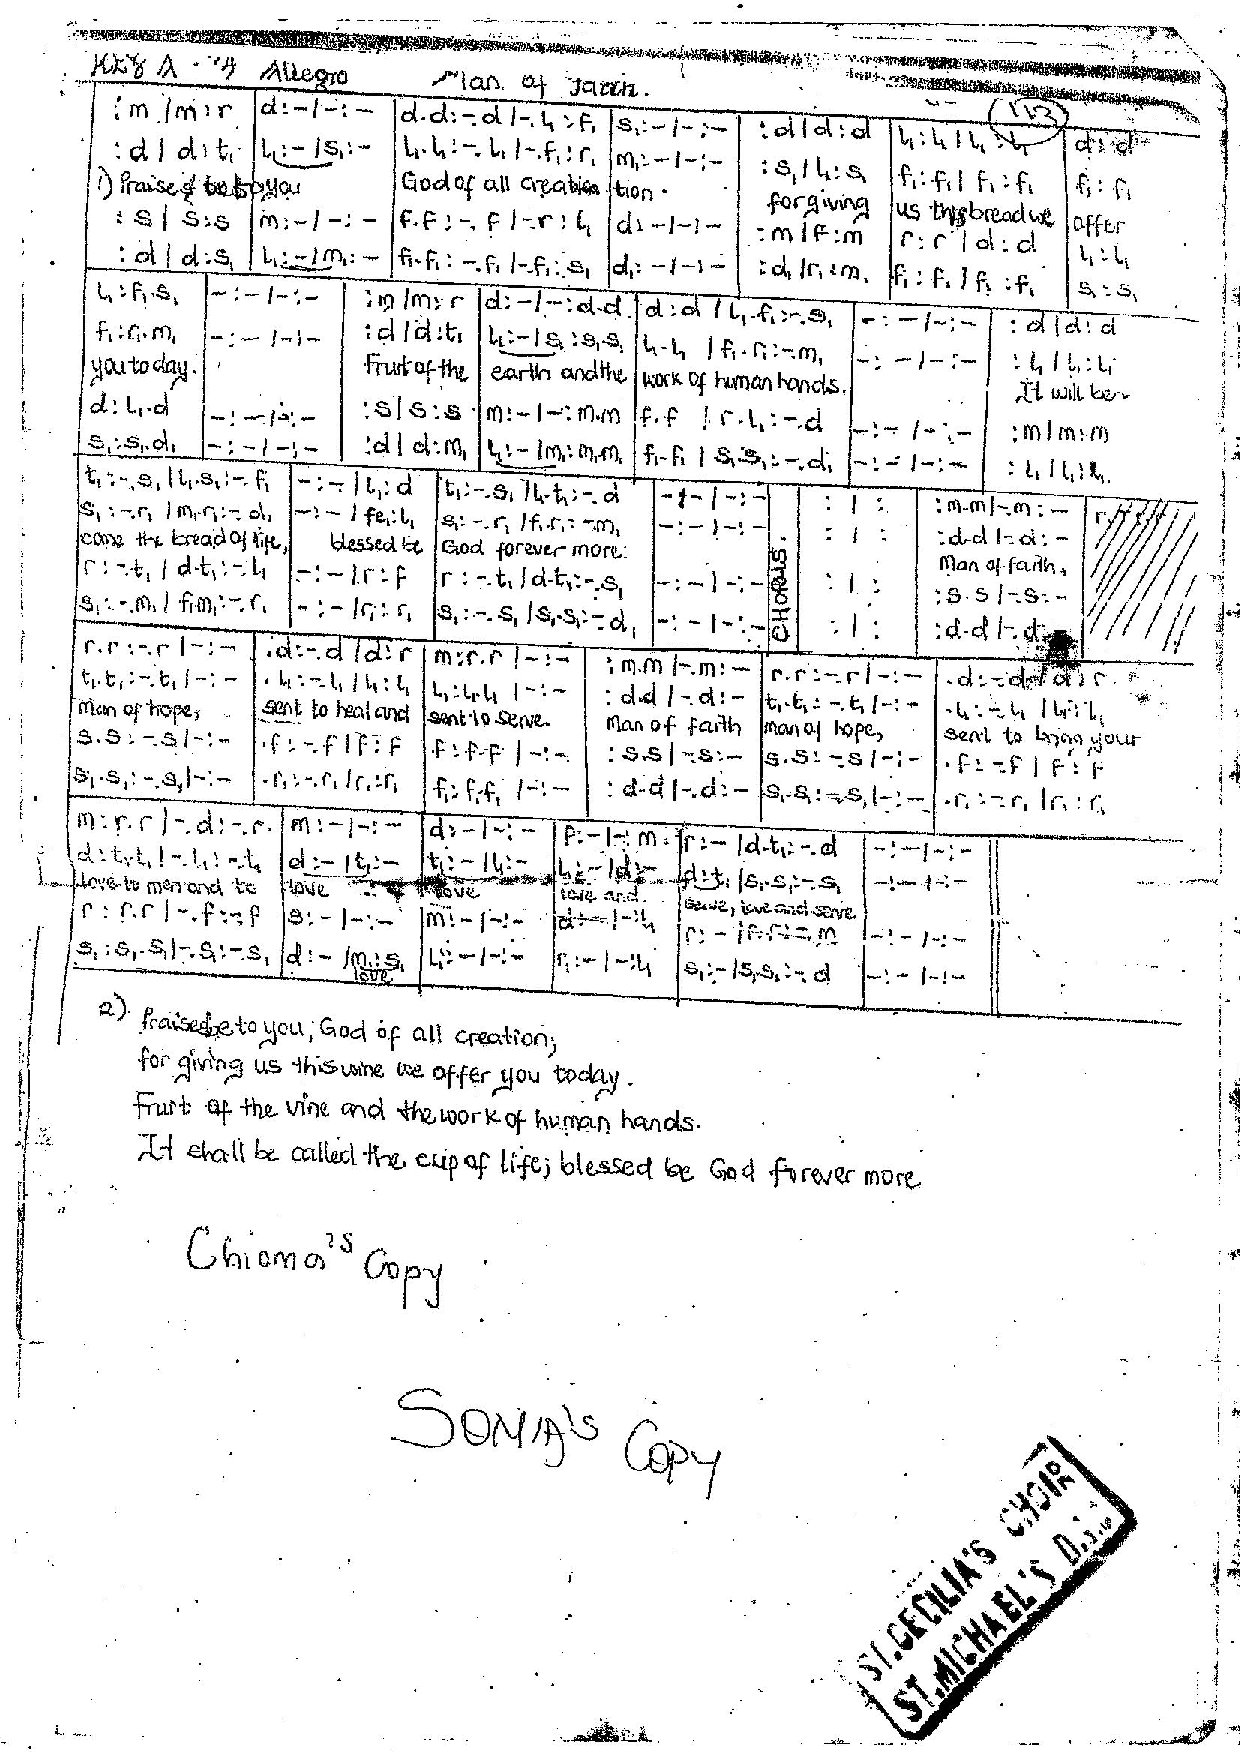 Key A - 4/4 Allegro Man of Faith.
113
:m /m:r | d:-/-:- | d.d:-.d/-.l₁:f₁ | s₁:-/-:- | :d/d:d | l₁:l₁/l₁:l₁ | d:d
:d/d:t₁ | l₁:-/s₁:- | l₁.l₁:-.l₁/-.f₁:r₁ | m₁:-/-:- | :s₁/l₁:s₁ | f₁:f₁/f₁:f₁ | f₁:f₁
1) Praised be to you God of all creation tion. for giving us this bread we offer
:s/s:s | m:-/-:- | f.f:-.f/-.r:l₁ | d:-/-:- | :m/f:m | r:r/d:d | l₁:l₁
:d/d:s₁ | l₁:-/m₁:- | f₁.f₁:-.f₁/-.f₁:s₁ | d₁:-/-:- | :d₁/r₁:m₁ | f₁:f₁/f₁:f₁ | s₁:s₁
l₁:f₁.s₁ | -:-/-:- | :m/m:r | d:-/-:d.d | d:d/l₁.f₁:-.s₁ | -:-/-:- | :d/d:d
f₁:r₁.m₁ | -:-/-:- | :d/d:t₁ | l₁:-/s₁:s₁.s₁ | l₁.l₁/f₁.r₁:-.m₁ | -:-/-:- | :l₁/l₁:l₁
you to day. Fruit of the earth and the work of human hands. It will be-
d:l₁.d | -:-/-:- | :s/s:s | m:-/-:m.m | f.f/r.l₁:-.d | -:-/-:- | :m/m:m
s₁:s₁.d₁ | -:-/-:- | :d/d:m₁ | l₁:-/m₁:m₁.m₁ | f₁.f₁/s₁.s₁:-.d₁ | -:-/-:- | :l₁/l₁:l₁
t₁:-.s₁/l₁.s₁:-.f₁ | -:-/l₁:d | t₁:-.s₁/l₁.t₁:-.d | -:-/-:- | :/: | :m.m/-.m:- | r.
s₁:-.r₁/m₁.r₁:-.d₁ | -:-/fe₁:l₁ | s₁:-.r₁/f₁.r₁:-.m₁ | -:-/-:- | :/: | :d.d/-.d:-
come the bread of life, blessed be God forever more: CHORUS. Man of faith,
r:-.t₁/d.t₁:-.l₁ | -:-/r:f | r:-.t₁/d.t₁:-.s₁ | -:-/-:- | :/: | :s.s/-.s:-
s₁:-.m₁/f₁.m₁:-.r₁ | -:-/r₁:r₁ | s₁:-.s₁/s₁.s₁:-.d₁ | -:-/-:- | :/: | :d.d/-.d
r.r:-.r/-:- | .d:-.d/d:r | m:r.r/-:- | :m.m/-.m:- | r.r:-.r/-:- | .d:-.d/d:r
t₁.t₁:-.t₁/-:- | .l₁:-.l₁/l₁:l₁ | l₁:l₁.l₁/-:- | :d.d/-.d:- | t₁.t₁:-.t₁/-:- | .l₁:-.l₁/l₁:l₁
Man of hope, sent to heal and sent to serve. Man of faith man of hope, sent to bring your
s.s:-.s/-:- | .f:-.f/f:f | f:f.f/-:- | :s.s/-.s:- | s.s:-.s/-:- | .f:-.f/f:f
s₁.s₁:-.s₁/-:- | .r₁:-.r₁/r₁:r₁ | f₁:f₁.f₁/-:- | :d.d/-.d:- | s₁.s₁:-.s₁/-:- | .r₁:-.r₁/r₁:r₁
m:r.r/-.d:-.r | m:-/-:- | d:-/-:- | f:-/-:m | r:-/d.t₁:-.d | -:-/-:-
d:t₁.t₁/-.l₁:-.t₁ | d:-/t₁:- | t₁:-/l₁:- | l₁:-/d:- | d:t₁/s₁.s₁:-.s₁ | -:-/-:-
love to men and to love love love and. serve, love and serve
r:r.r/-.f:-.f | s:-/-:- | m:-/-:- | d:-/-:l₁ | r:-/f.f:-.m | -:-/-:-
s₁:s₁.s₁/-.s₁:-.s₁ | d:-/m₁:s₁ | l₁:-/-:- | r₁:-/-:l₁ | s₁:-/s₁.s₁:-.d | -:-/-:-
love
2) Praised be to you, God of all creation;
for giving us this wine we offer you today.
Fruit of the vine and the work of human hands.
It shall be called the cup of life; blessed be God forever more
Chioma's Copy
SONIA's Copy
ST. CECILIA'S CHOIR
ST. MICHAEL'S D.S.C